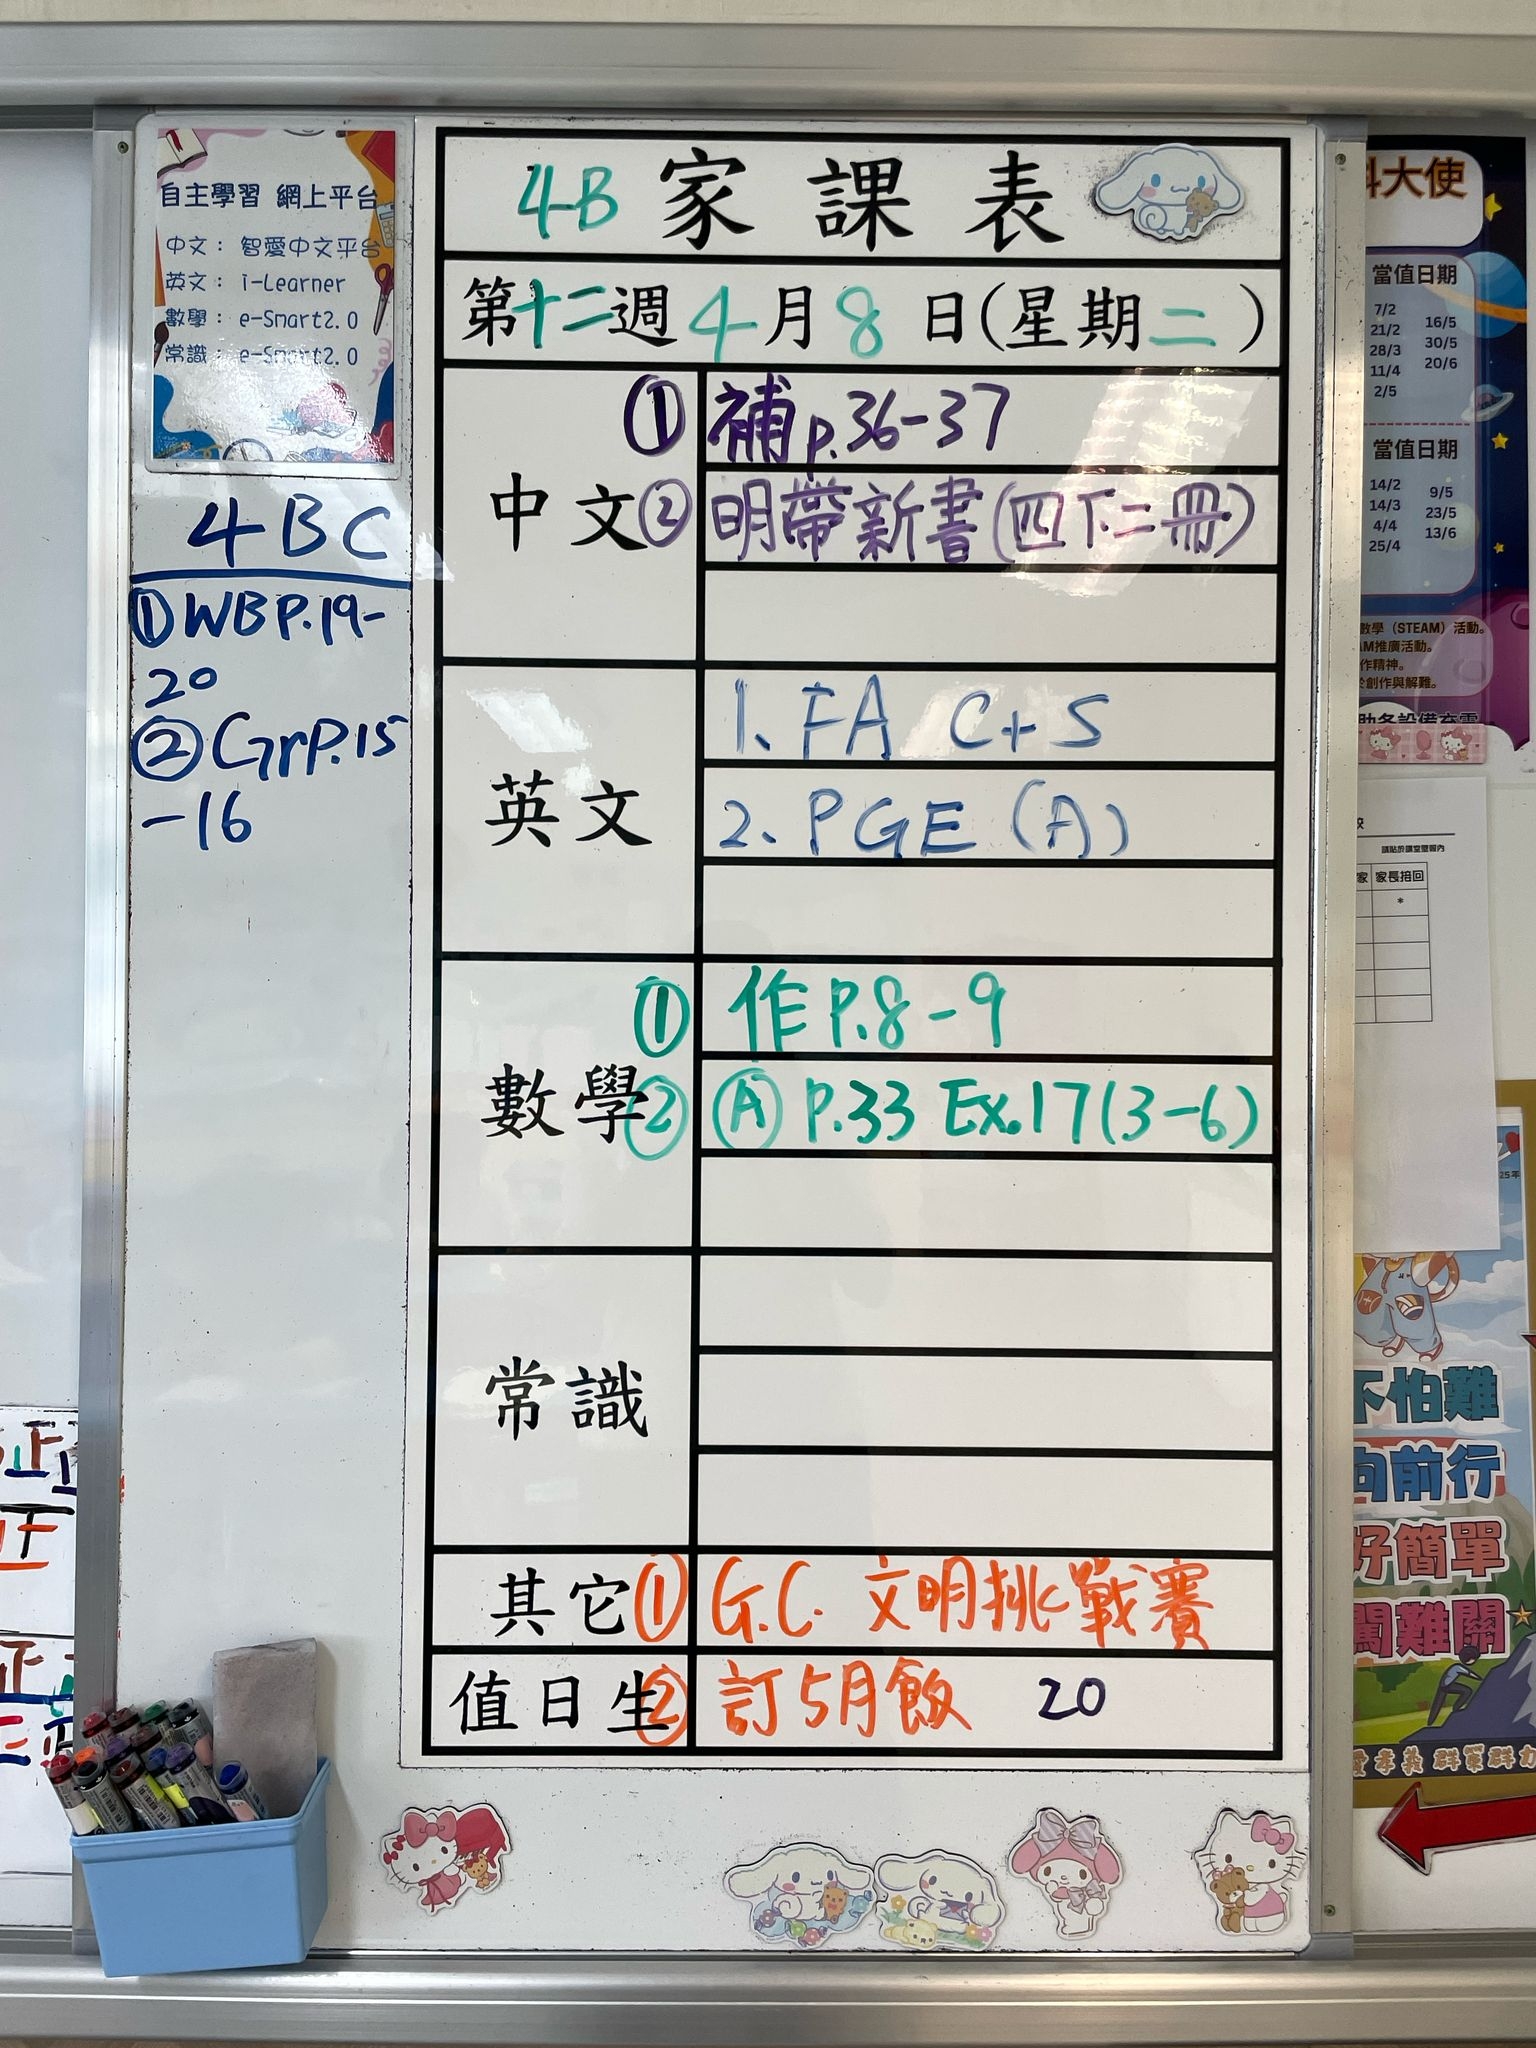 自主學習 網上平台
中文： 智愛中文平台
英文： i-Learner
數學： e-Smart2.0
常識： e-Smart2.0
4BC
①WBP.19-
20
②GrP.15
-16
4B 家課表
第十二週4月8日(星期二)
中文
① 補p.36-37
② 明帶新書(四下二冊)
英文
1. FA C+S
2. PGE (A)
數學
① 作P.8-9
② Ⓐ P.33 Ex.17(3-6)
常識
其它 ① G.C. 文明挑戰賽
值日生 ② 訂5月飯 20
科大使
當值日期
7/2
21/2 16/5
28/3 30/5
11/4 20/6
2/5
當值日期
14/2 9/5
14/3 23/5
4/4 13/6
25/4
數學（STEAM）活動。
AM推廣活動。
作精神。
創作與解難。
助各設備充電
家長接回
*
25年
不怕難
向前行
好簡單
闖難關